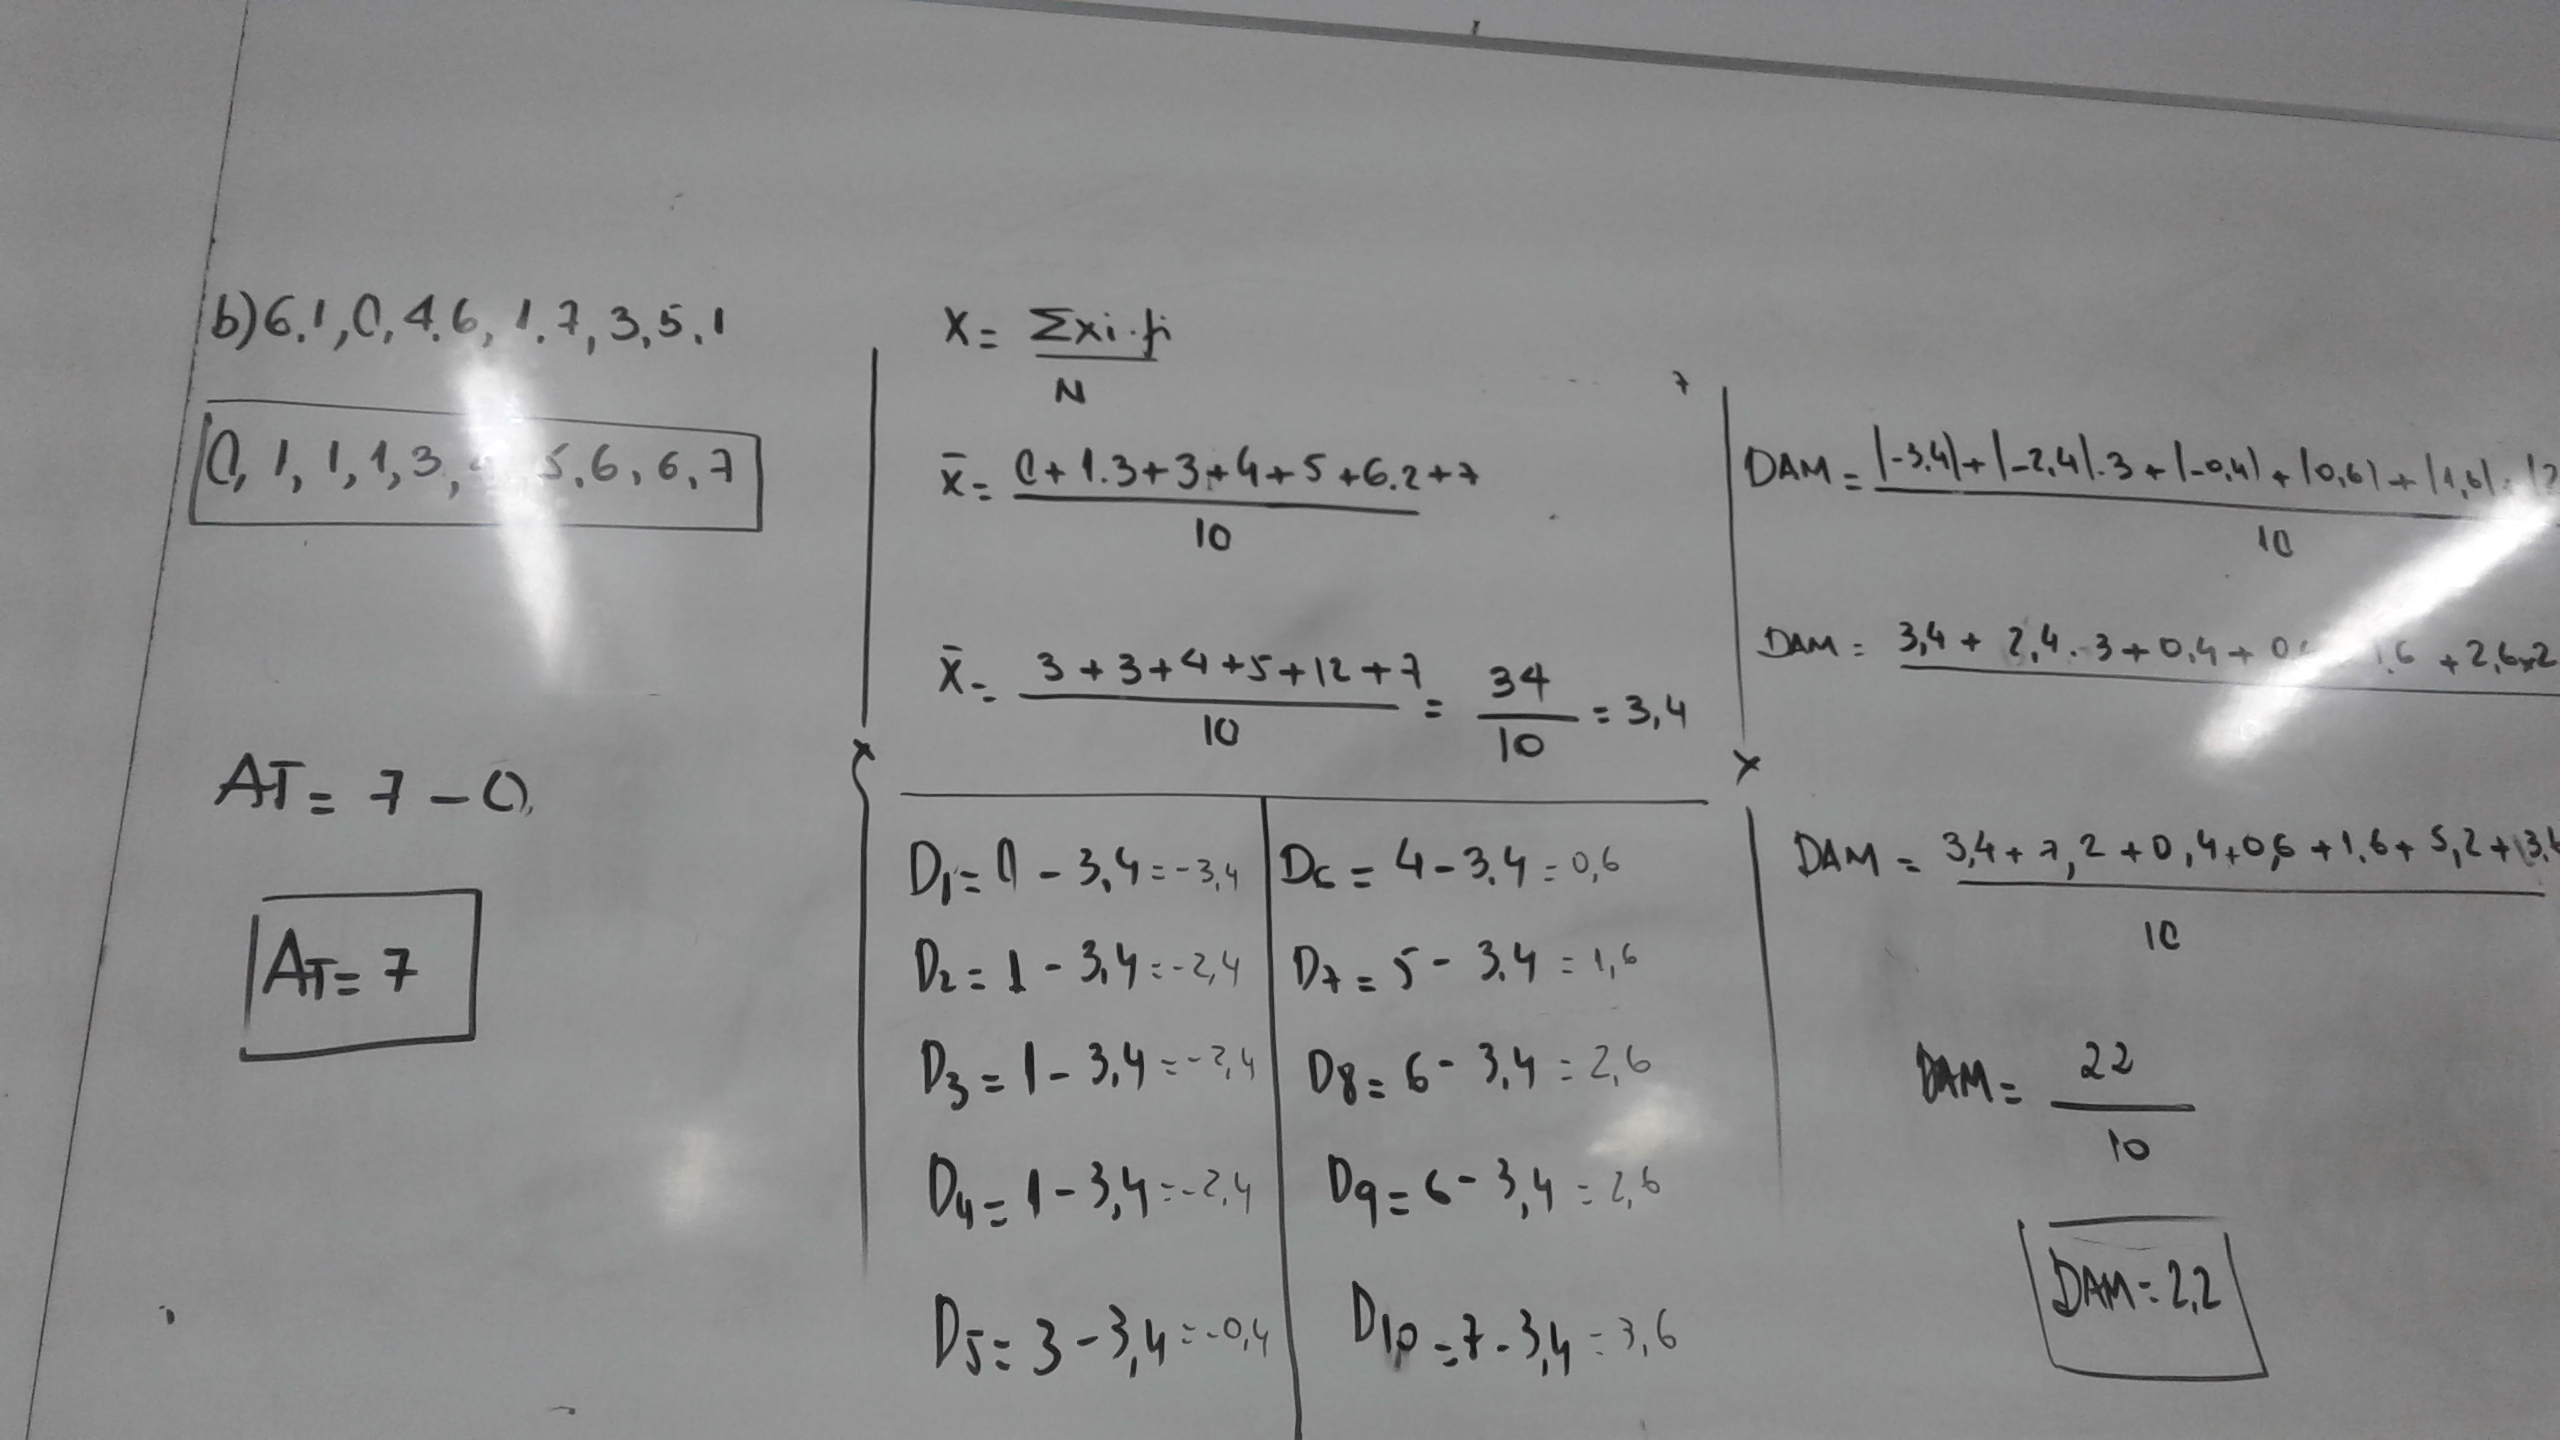 b) 6,1,0,4,6,1,7,3,5,1
0,1,1,1,3, 5,6,6,7
AT = 7 - 0
AT = 7
X = Σxi.fi
N
x̄ = 0+1.3+3+4+5+6.2+7
10
x̄ = 3+3+4+5+12+7 = 34 = 3,4
10 10
D1 = 0 - 3,4 = -3,4
D2 = 1 - 3,4 = -2,4
D3 = 1 - 3,4 = -2,4
D4 = 1 - 3,4 = -2,4
D5 = 3 - 3,4 = -0,4
D6 = 4 - 3,4 = 0,6
D7 = 5 - 3,4 = 1,6
D8 = 6 - 3,4 = 2,6
D9 = 6 - 3,4 = 2,6
D10 = 7 - 3,4 = 3,6
7
DAM = |-3,4|+|-2,4|.3+|-0,4|+|0,6|+|1,6|
10
DAM = 3,4 + 2,4.3+0,4+ 1,6 +2,6x2
DAM = 3,4+7,2+0,4+0,6+1,6+5,2+3,6
10
DAM = 22
10
DAM = 2,2